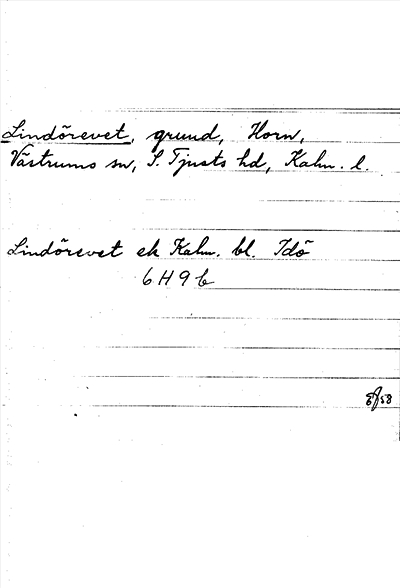 Lindörevet, grund, Horn,
Västrums sn, S. Tjusts hd, Kalm. l.
Lindörevet ek Kalm. bl. Idö
6 H 9 b
58